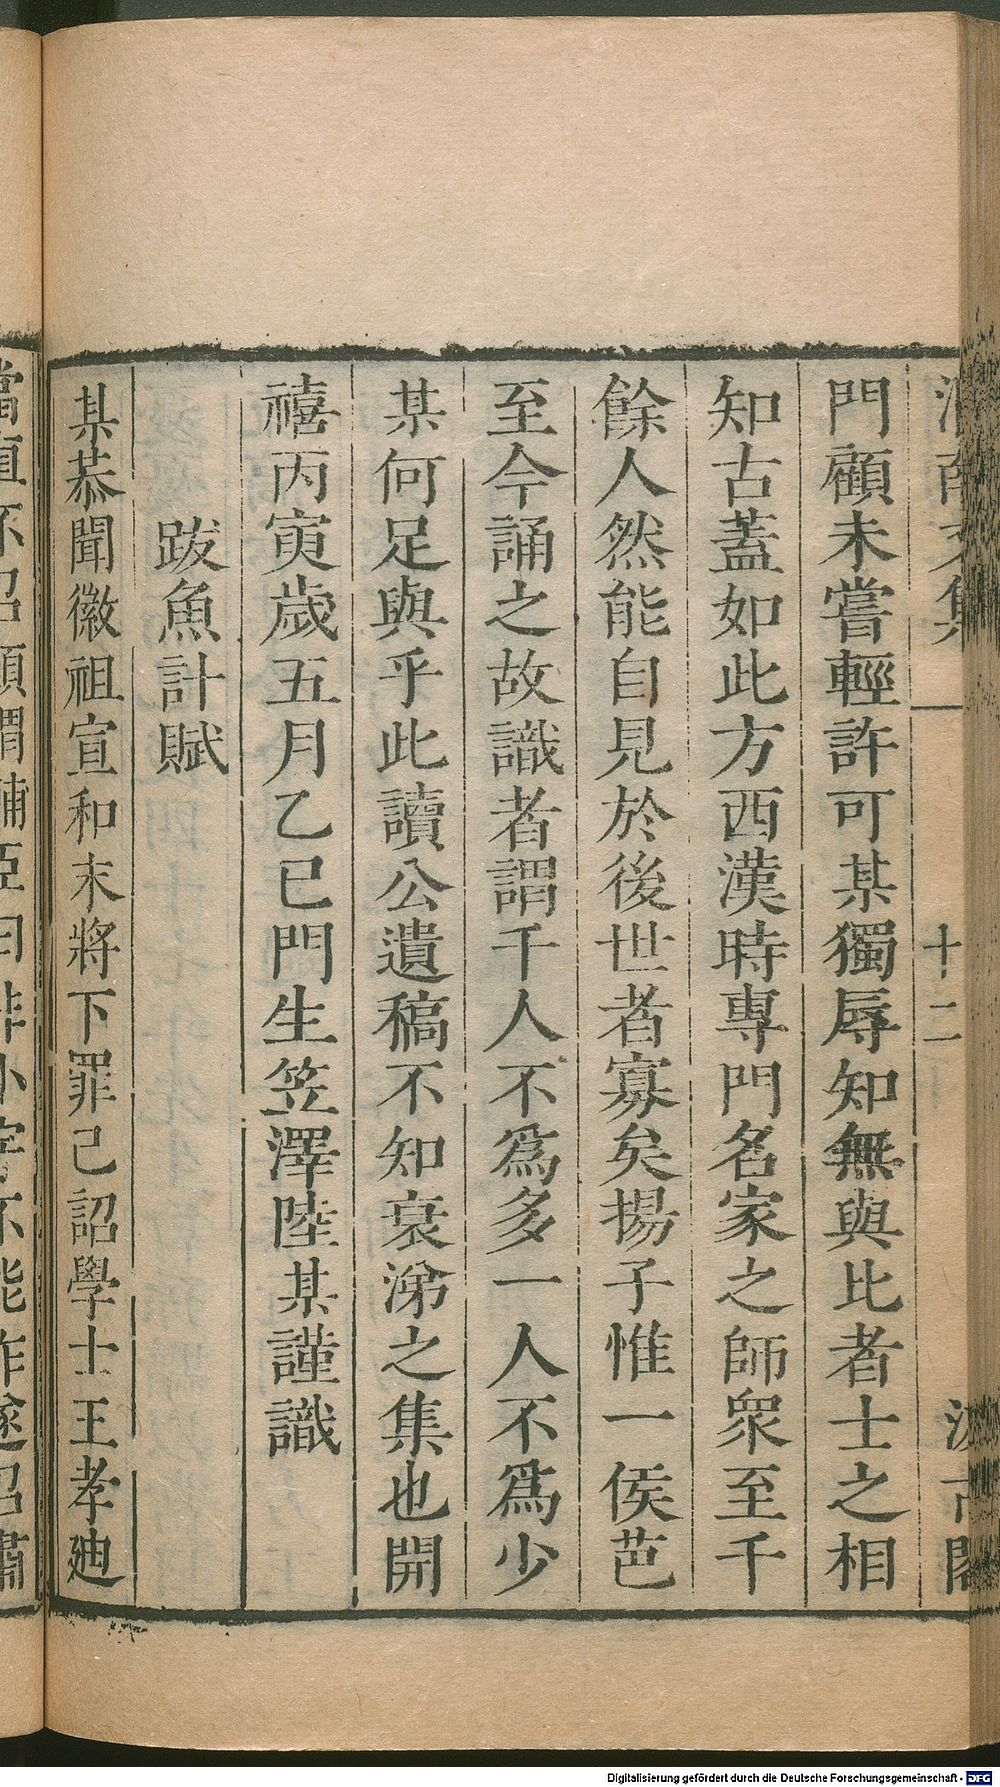 渭南文集
十二
汲古閣
門顧未嘗輕許可某獨辱知無與比者士之相
知古蓋如此方西漢時專門名家之師衆至千
餘人然能自見於後世者寡矣揚子惟一侯芭
至今誦之故識者謂千人不為多一人不為少
某何足與乎此讀公遺稿不知衰涕之集也開
禧丙寅歲五月乙巳門生笠澤陸某謹識
跋魚計賦
某恭聞徽祖宣和末將下罪己詔學士王孝廸
Digitalisierung gefördert durch die Deutsche Forschungsgemeinschaft - DFG